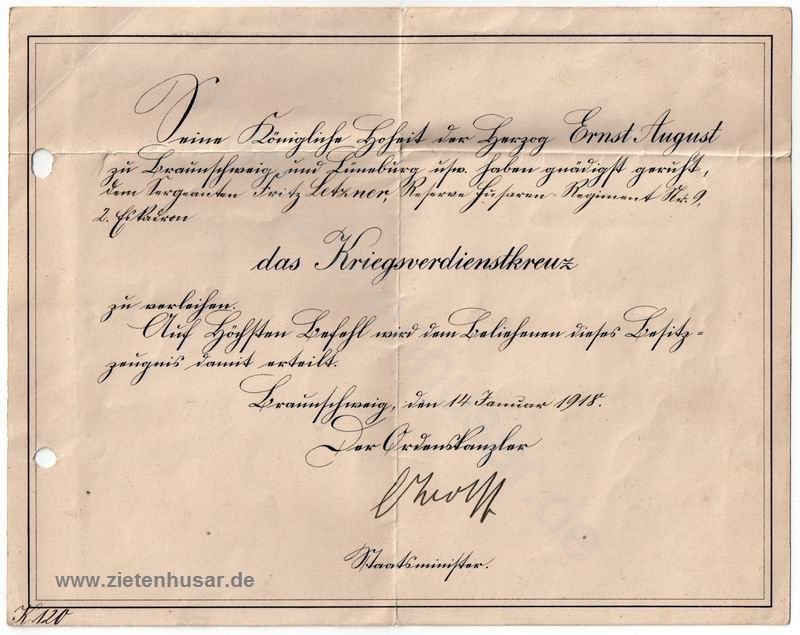 Seine Königliche Hoheit der Herzog Ernst August
zu Braunschweig und Lüneburg usw. haben gnädigst geruht,
dem Sergeanten Fritz Letzner, Reserve Husaren-Regiment Nr. 9,
2. Eskadron
das Kriegsverdienstkreuz
zu verleihen.
Auf Höchsten Befehl wird dem Beliehenen dieses Besitz=
zeugnis damit erteilt.
Braunschweig, den 14 Januar 1918.
Der Ordenskanzler
Staatsminister.
www.zietenhusar.de
K 120